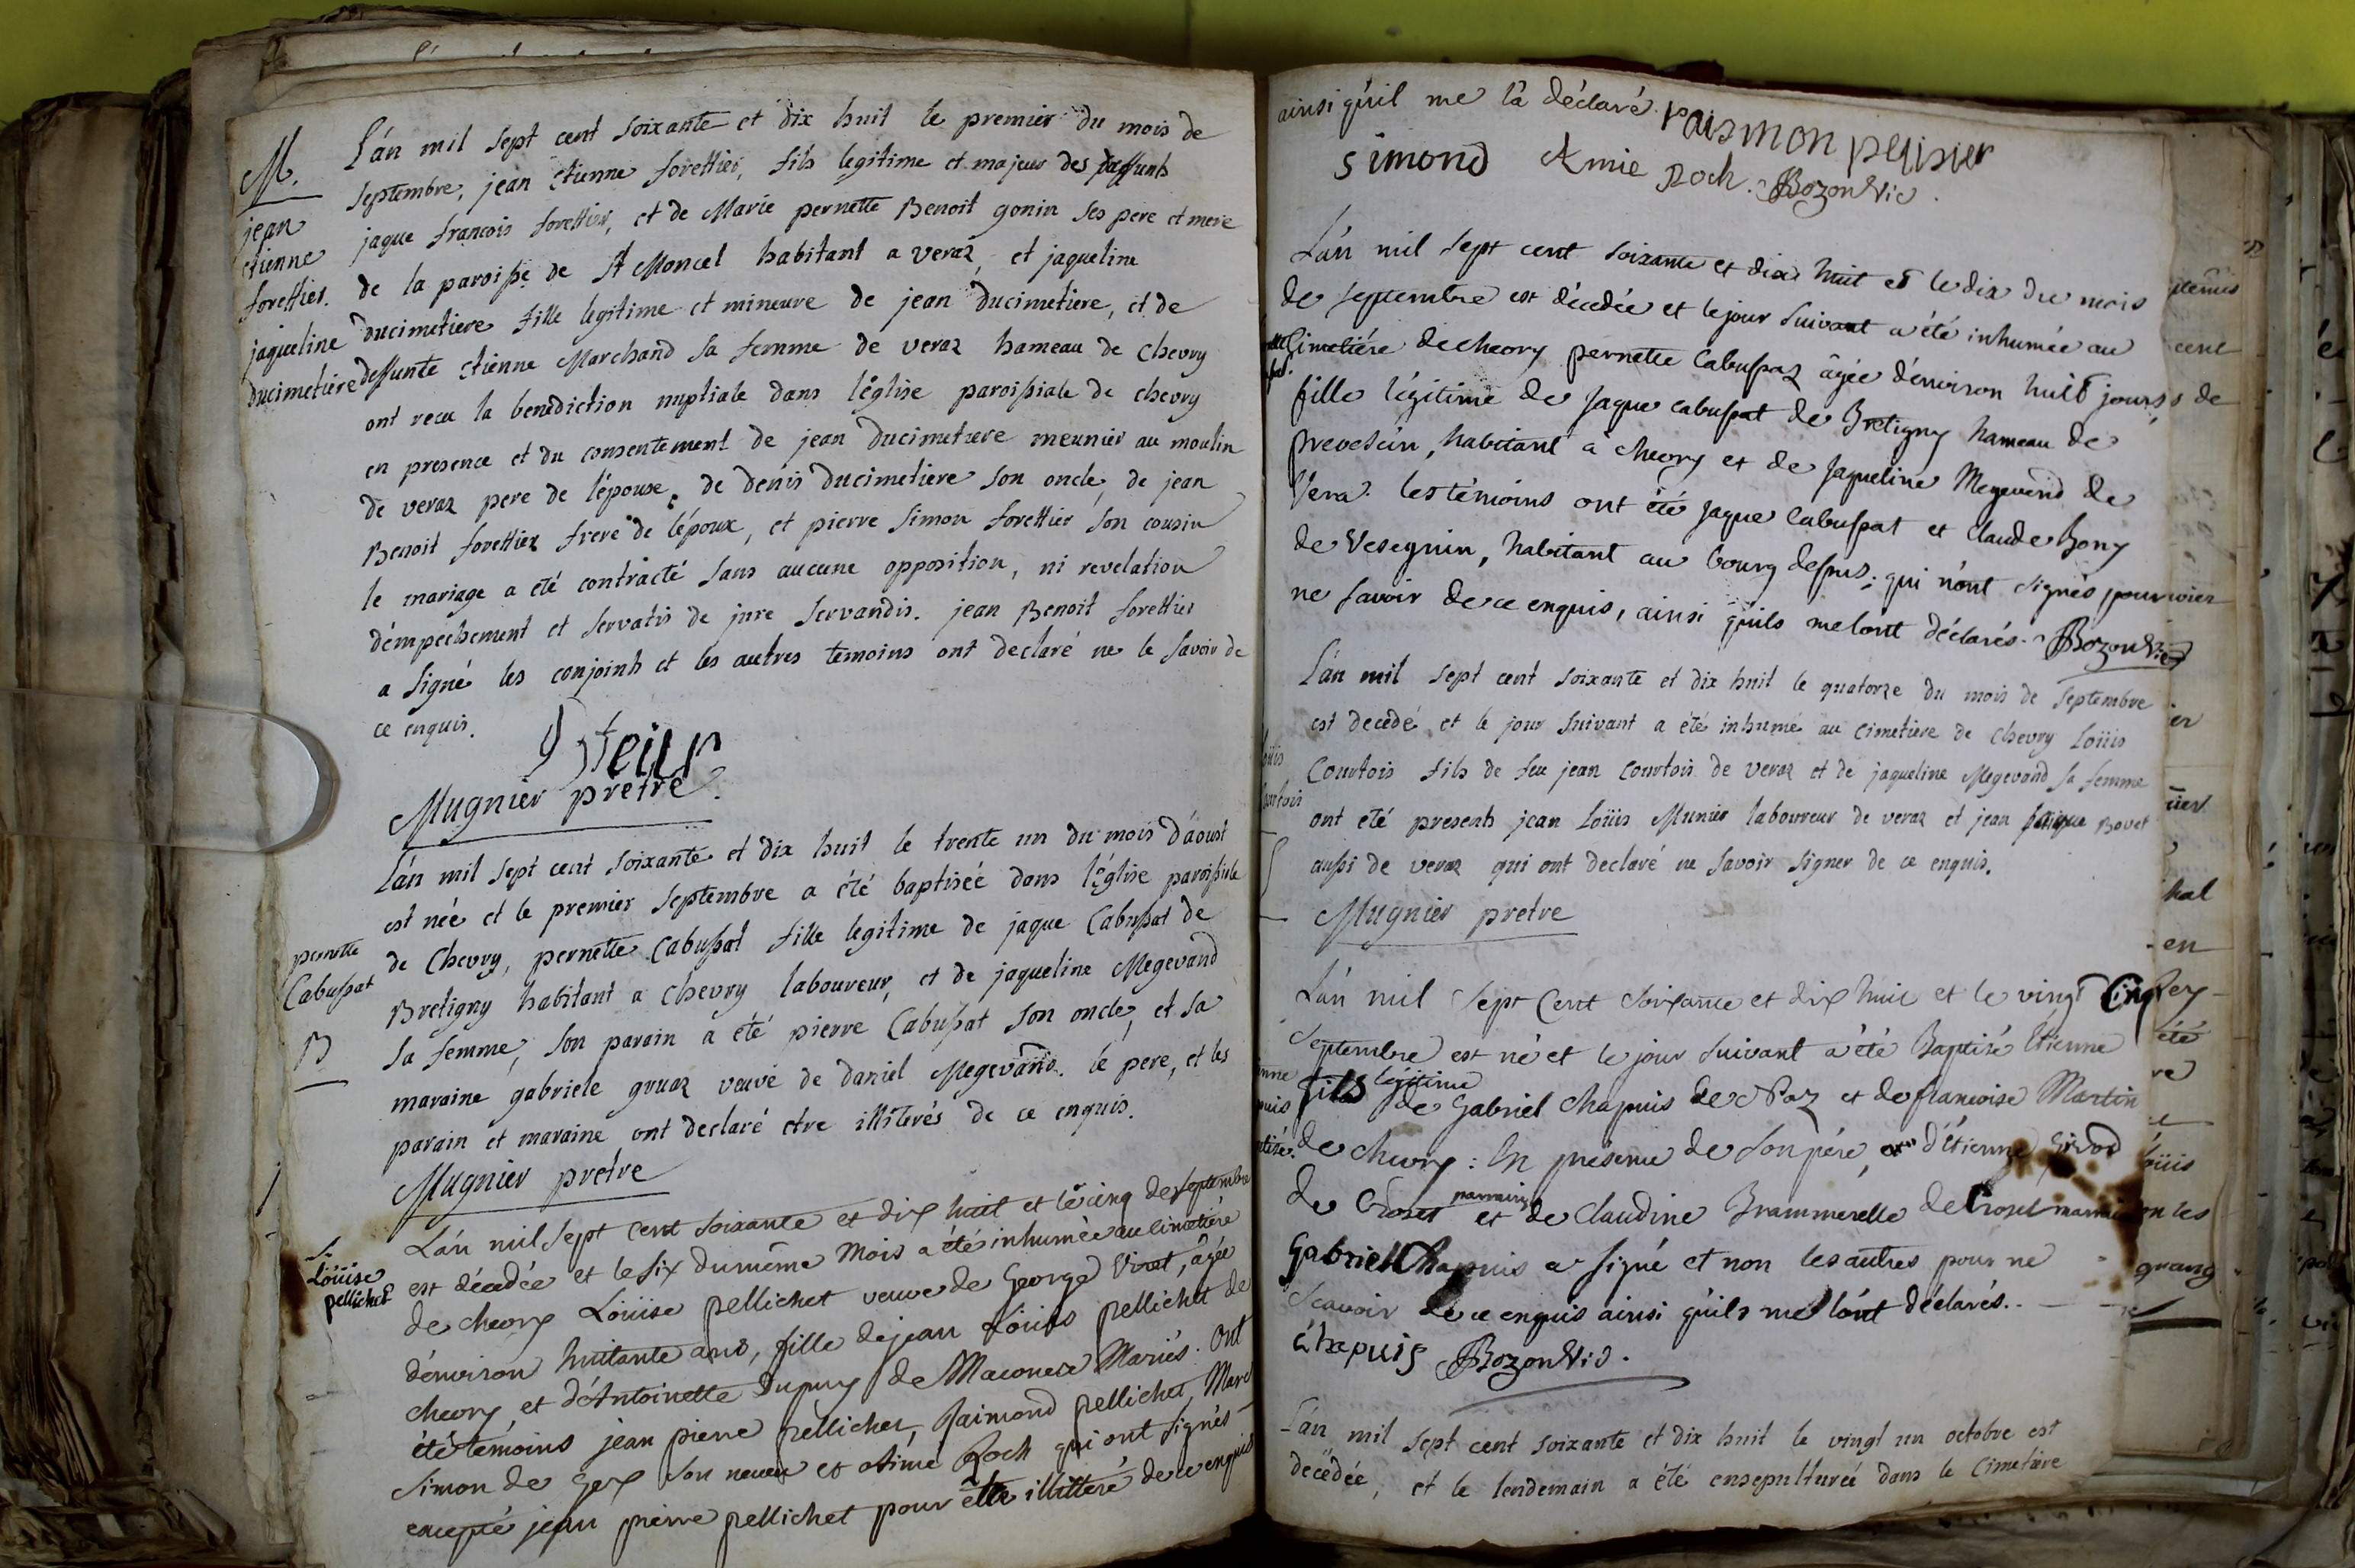 M.
jean
etienne
forettier.
jaqueline
ducimetiere
L'án mil sept cent soixante et dix huit le premier du mois de
septembre, jean etienne forettier, fils legitime et majeur des deffunts
jaque francois forettier, et de Marie pernette Benoit gonin ses pere et mere
de la paroisse de St Moncel habitant a veraz, et jaqueline
ducimetiere fille legitime et mineure de jean ducimetiere, et de
deffunte etienne Marchand sa femme de veraz hameau de chevry
ont recu la benediction nuptiale dans l'église paroissiale de chevry
en presence et du consentement de jean ducimetiere meunier au moulin
de veraz pere de l'épouse, de denis ducimetiere son oncle, de jean
Benoit forettier frere de l'époux, et pierre simon forettier son cousin
le mariage a été contracté sans aucune opposition, ni revelation
d'émpechement et servatis de jure servandis. jean Benoit forettier
a signé les conjoints et les autres temoins ont declaré ne le savoir de
ce enquis.
Mugnier pretre.
pernette
Cabussat
B
L'án mil sept cent soixante et dix huit le trente un du mois d'áoust
est née et le premier septembre a été baptisée dans l'église paroissiale
de Chevry, pernette Cabussat fille legitime de jaque Cabussat de
Bretigny habitant a chevry laboureur, et de jaqueline Megevand
sa femme, son parain a été pierre Cabussat son oncle, et sa
maraine gabriele gruaz veuve de daniel Megevand. le pere, et les
parain et maraine ont declaré etre illiterés de ce enquis.
Mugnier pretre
S.
Loüise
pellichet
L'án mil sept cent soixante et dix huit et le cinq de septembre
est décedée et le six du même mois a été inhumée au cimetiére
de chevry Loüise pellichet veuve de George Viret, âgée
d'énviron huitante ans, fille de jean Loüis pellichet de
chevry, et d'Antoinette Dupuy de Maconex Mariés. Ont
été temoins jean pierre pellichet, Raimond pellichet, Marc
Simon de Gex son neveu et Aimé Roch qui ont signés
excepté jean pierre pellichet pour être illitteré de ce enquis
ainsi qúil me lá déclaré. raismon pelisier
simond Amie Roch. Bozon Vic.
L'án mil sept cent soixante et dix huit et le dix du mois
de septembre est décedée et le jour suivant a été inhumée au
Cimetiére de chevry pernette Cabussaz âgée d'énviron huit jours,
fille légitime de Jaque cabussat de Bretigny hameau de
prevessin, habitant à chevry et de Jaqueline Megevend de
Vera. les témoins ont été Jaque Cabussat et Claude Bony
de Vesegnin, habitant au bourg dessus; qui n'ont signés pour
ne savoir de ce enquis, ainsi qúils me lont déclarés. Bozon Vic
L'án mil sept cent soixante et dix huit le quatorze du mois de septembre
est decedé et le jour suivant a été inhumé au cimetiere de chevry Loüis
Courtois fils de feu jean Courtois de veraz et de jaqueline Megevand sa femme
ont été presents jean Loüis Munier laboureur de veraz et jean Bovet
aussi de veraz qui ont declaré ne savoir signer de ce enquis.
Mugnier pretre
L'án mil sept Cent soixante et dix huit et le vingt Cinq
Septembre est né et le jour suivant a été Baptisé Etienne
fils légitime de Gabriel chapuis de Naz et de francoise Martin
de chevry: En présence de son pére, et d'étienne Girod
de Crozet parrain et de Claudine Brammerelle de Crozet marraine
Gabriel Chapuis a signé et non les autres pour ne
scavoir de ce enquis ainsi qúils me lónt déclarés.
Chapuis Bozon Vic.
L'án mil sept cent soixante et dix huit le vingt un octobre est
decedée, et le lendemain a été ensepulturée dans le Cimetiere